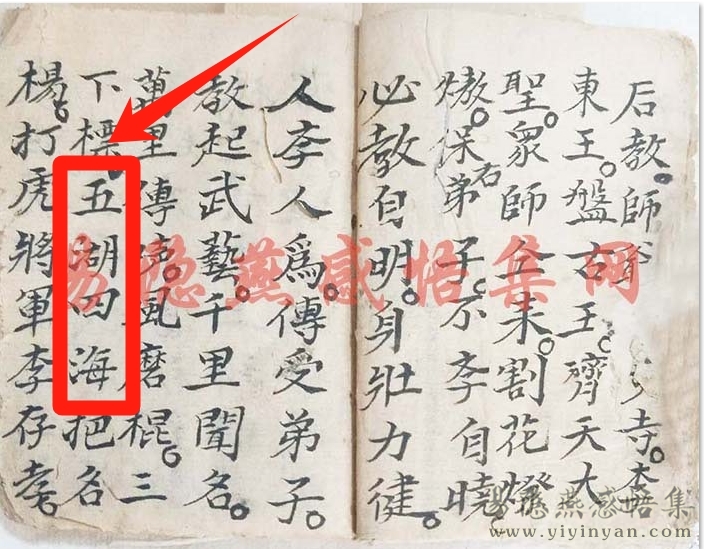 后教。師爷寺。
東王。盤古王。齊天大
聖。衆師仝来。割花燈
保右弟子。不李自曉
必教自明。身壯力健。
人李人為。傳受弟子。
教起武藝。千里聞名。
萬里傳磨棍。三
下標。五湖四海把名
楊。打虎將軍李存孝。
易隐燕感悟集网
易隐燕感悟集
www.yiyinyan.com